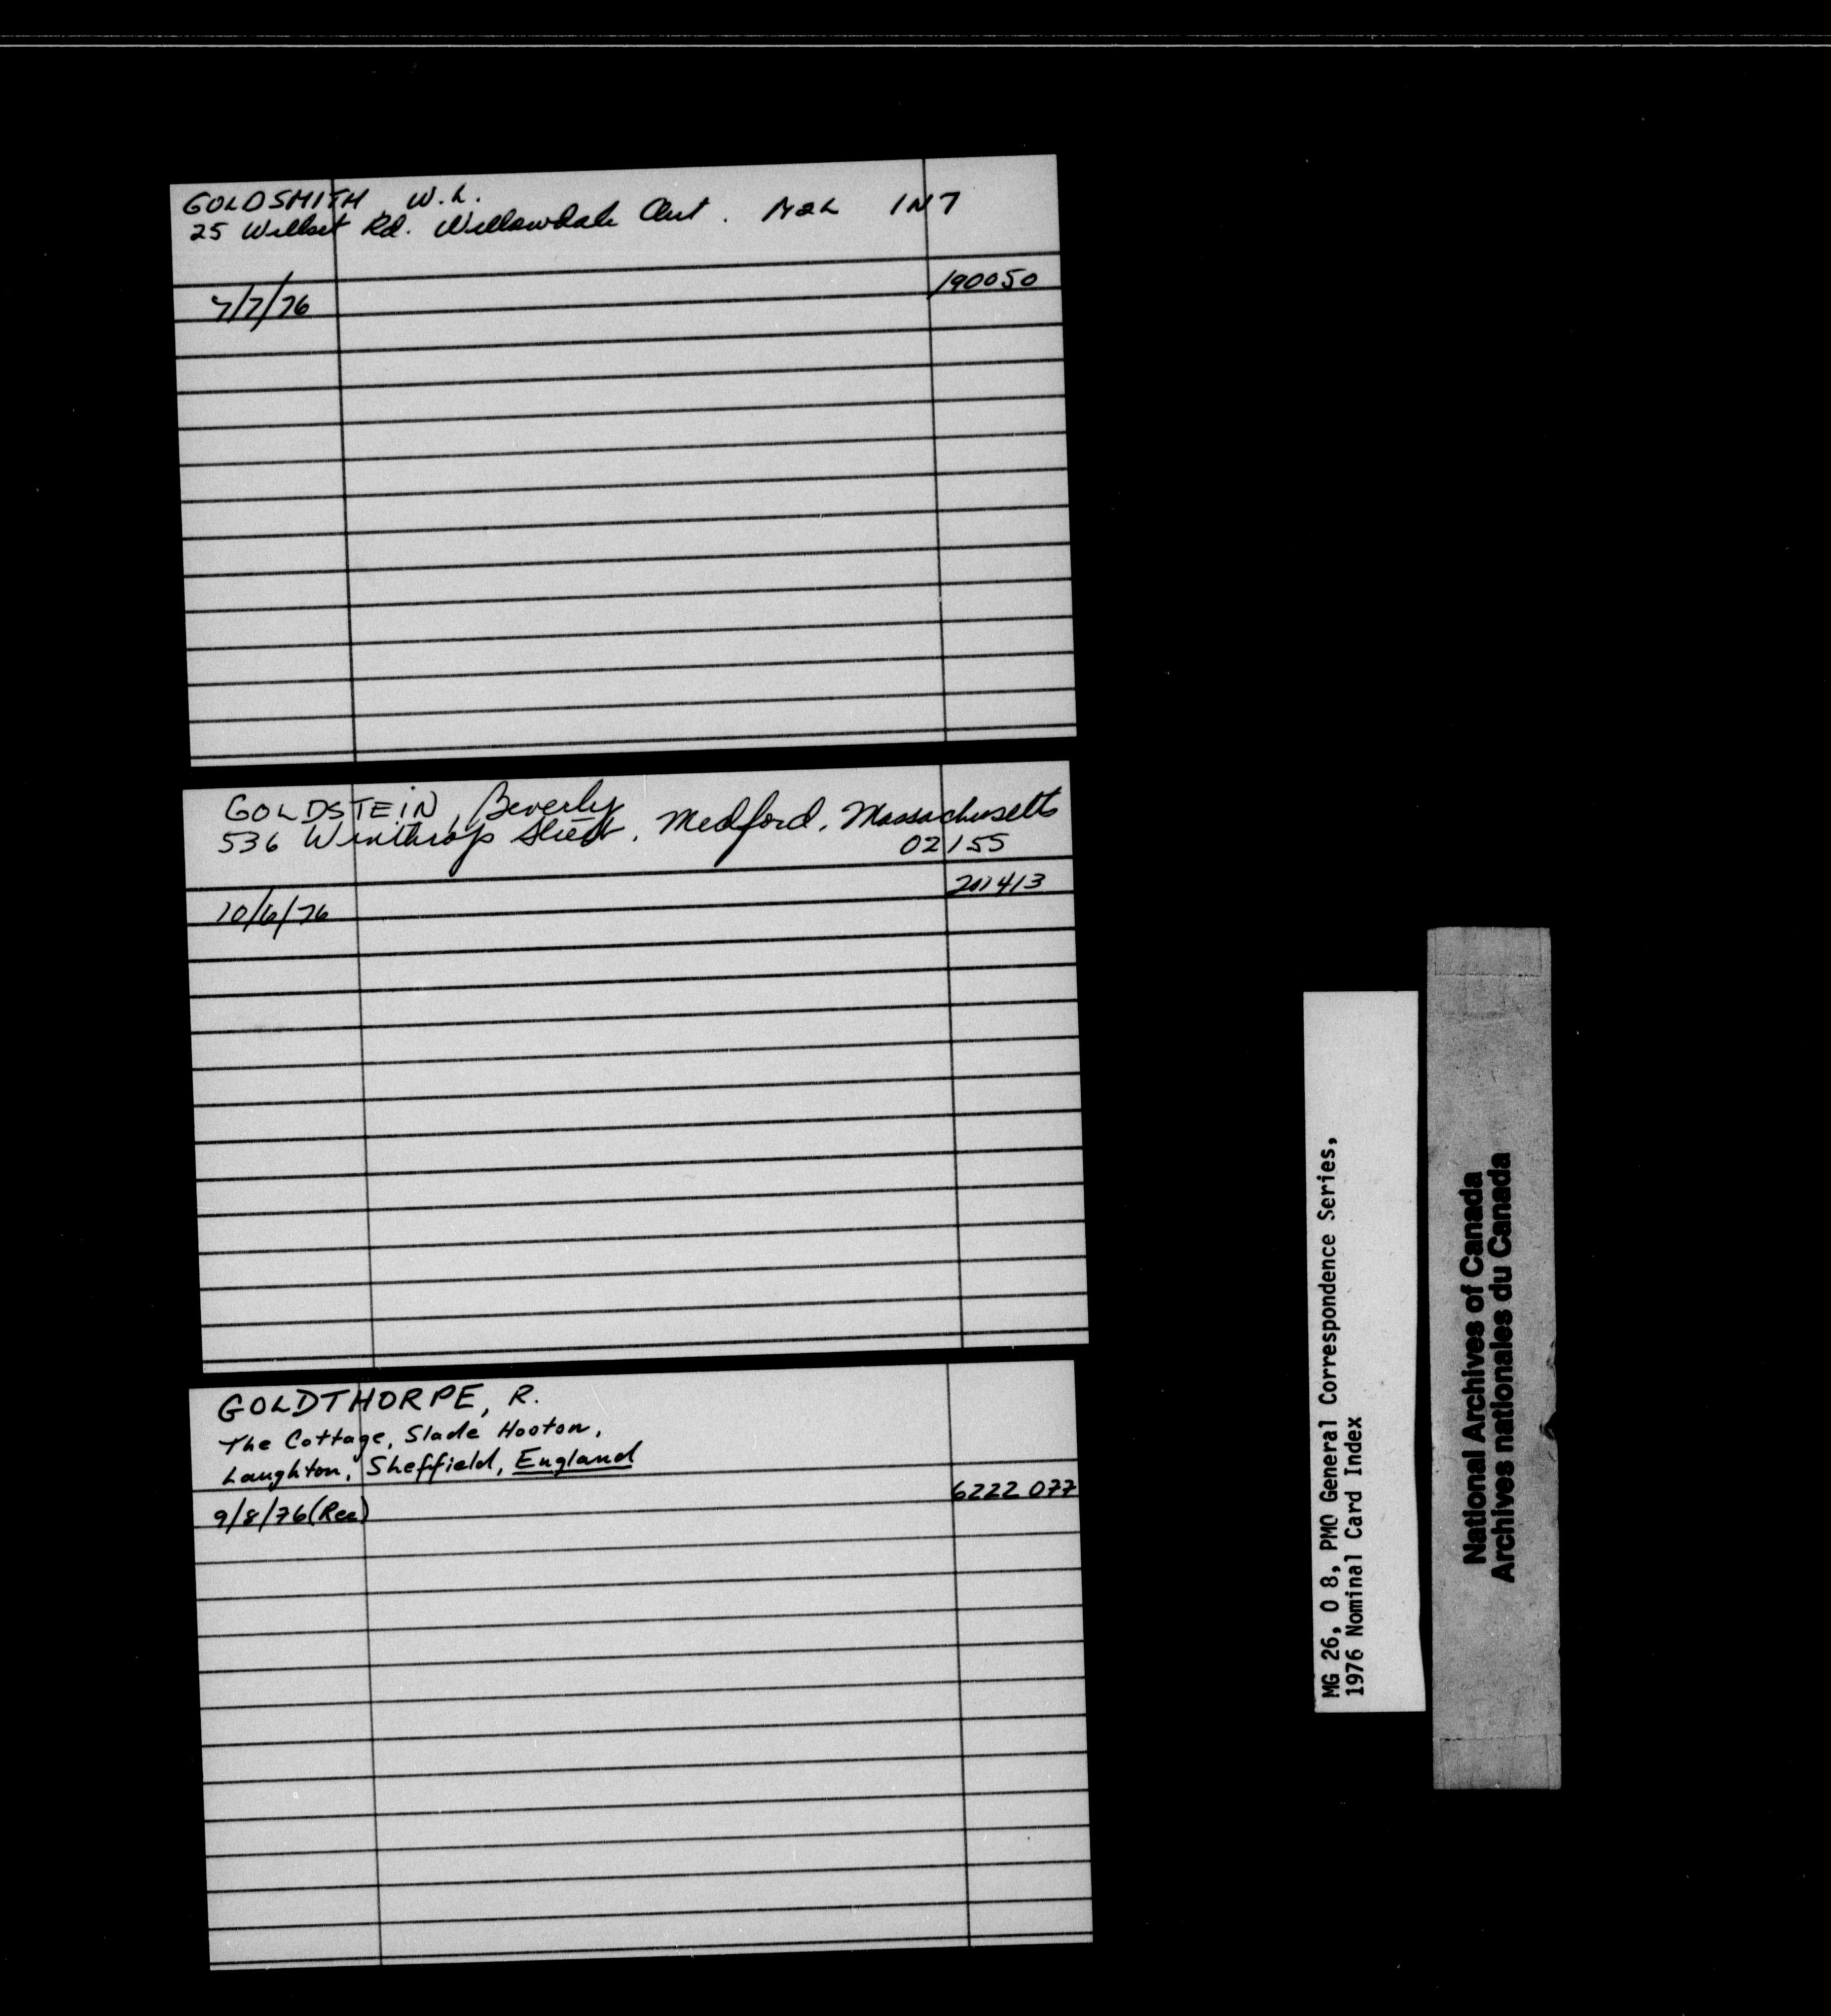 GOLDSMITH, W.L.
25 Willset Rd. Willowdale Ont. M2L 1N7
7/7/76
190050
GOLDSTEIN, Beverly
536 Winthrop Street, Medford, Massachusetts
02155
10/6/76
GOLDTHORPE, R.
The Cottage, Slade Hooton,
Laughton, Sheffield, England
9/8/76 (Rec)
6222 077
MG 26, O 8, PMO General Correspondence Series,
1976 Nominal Card Index
National Archives of Canada
Archives nationales du Canada